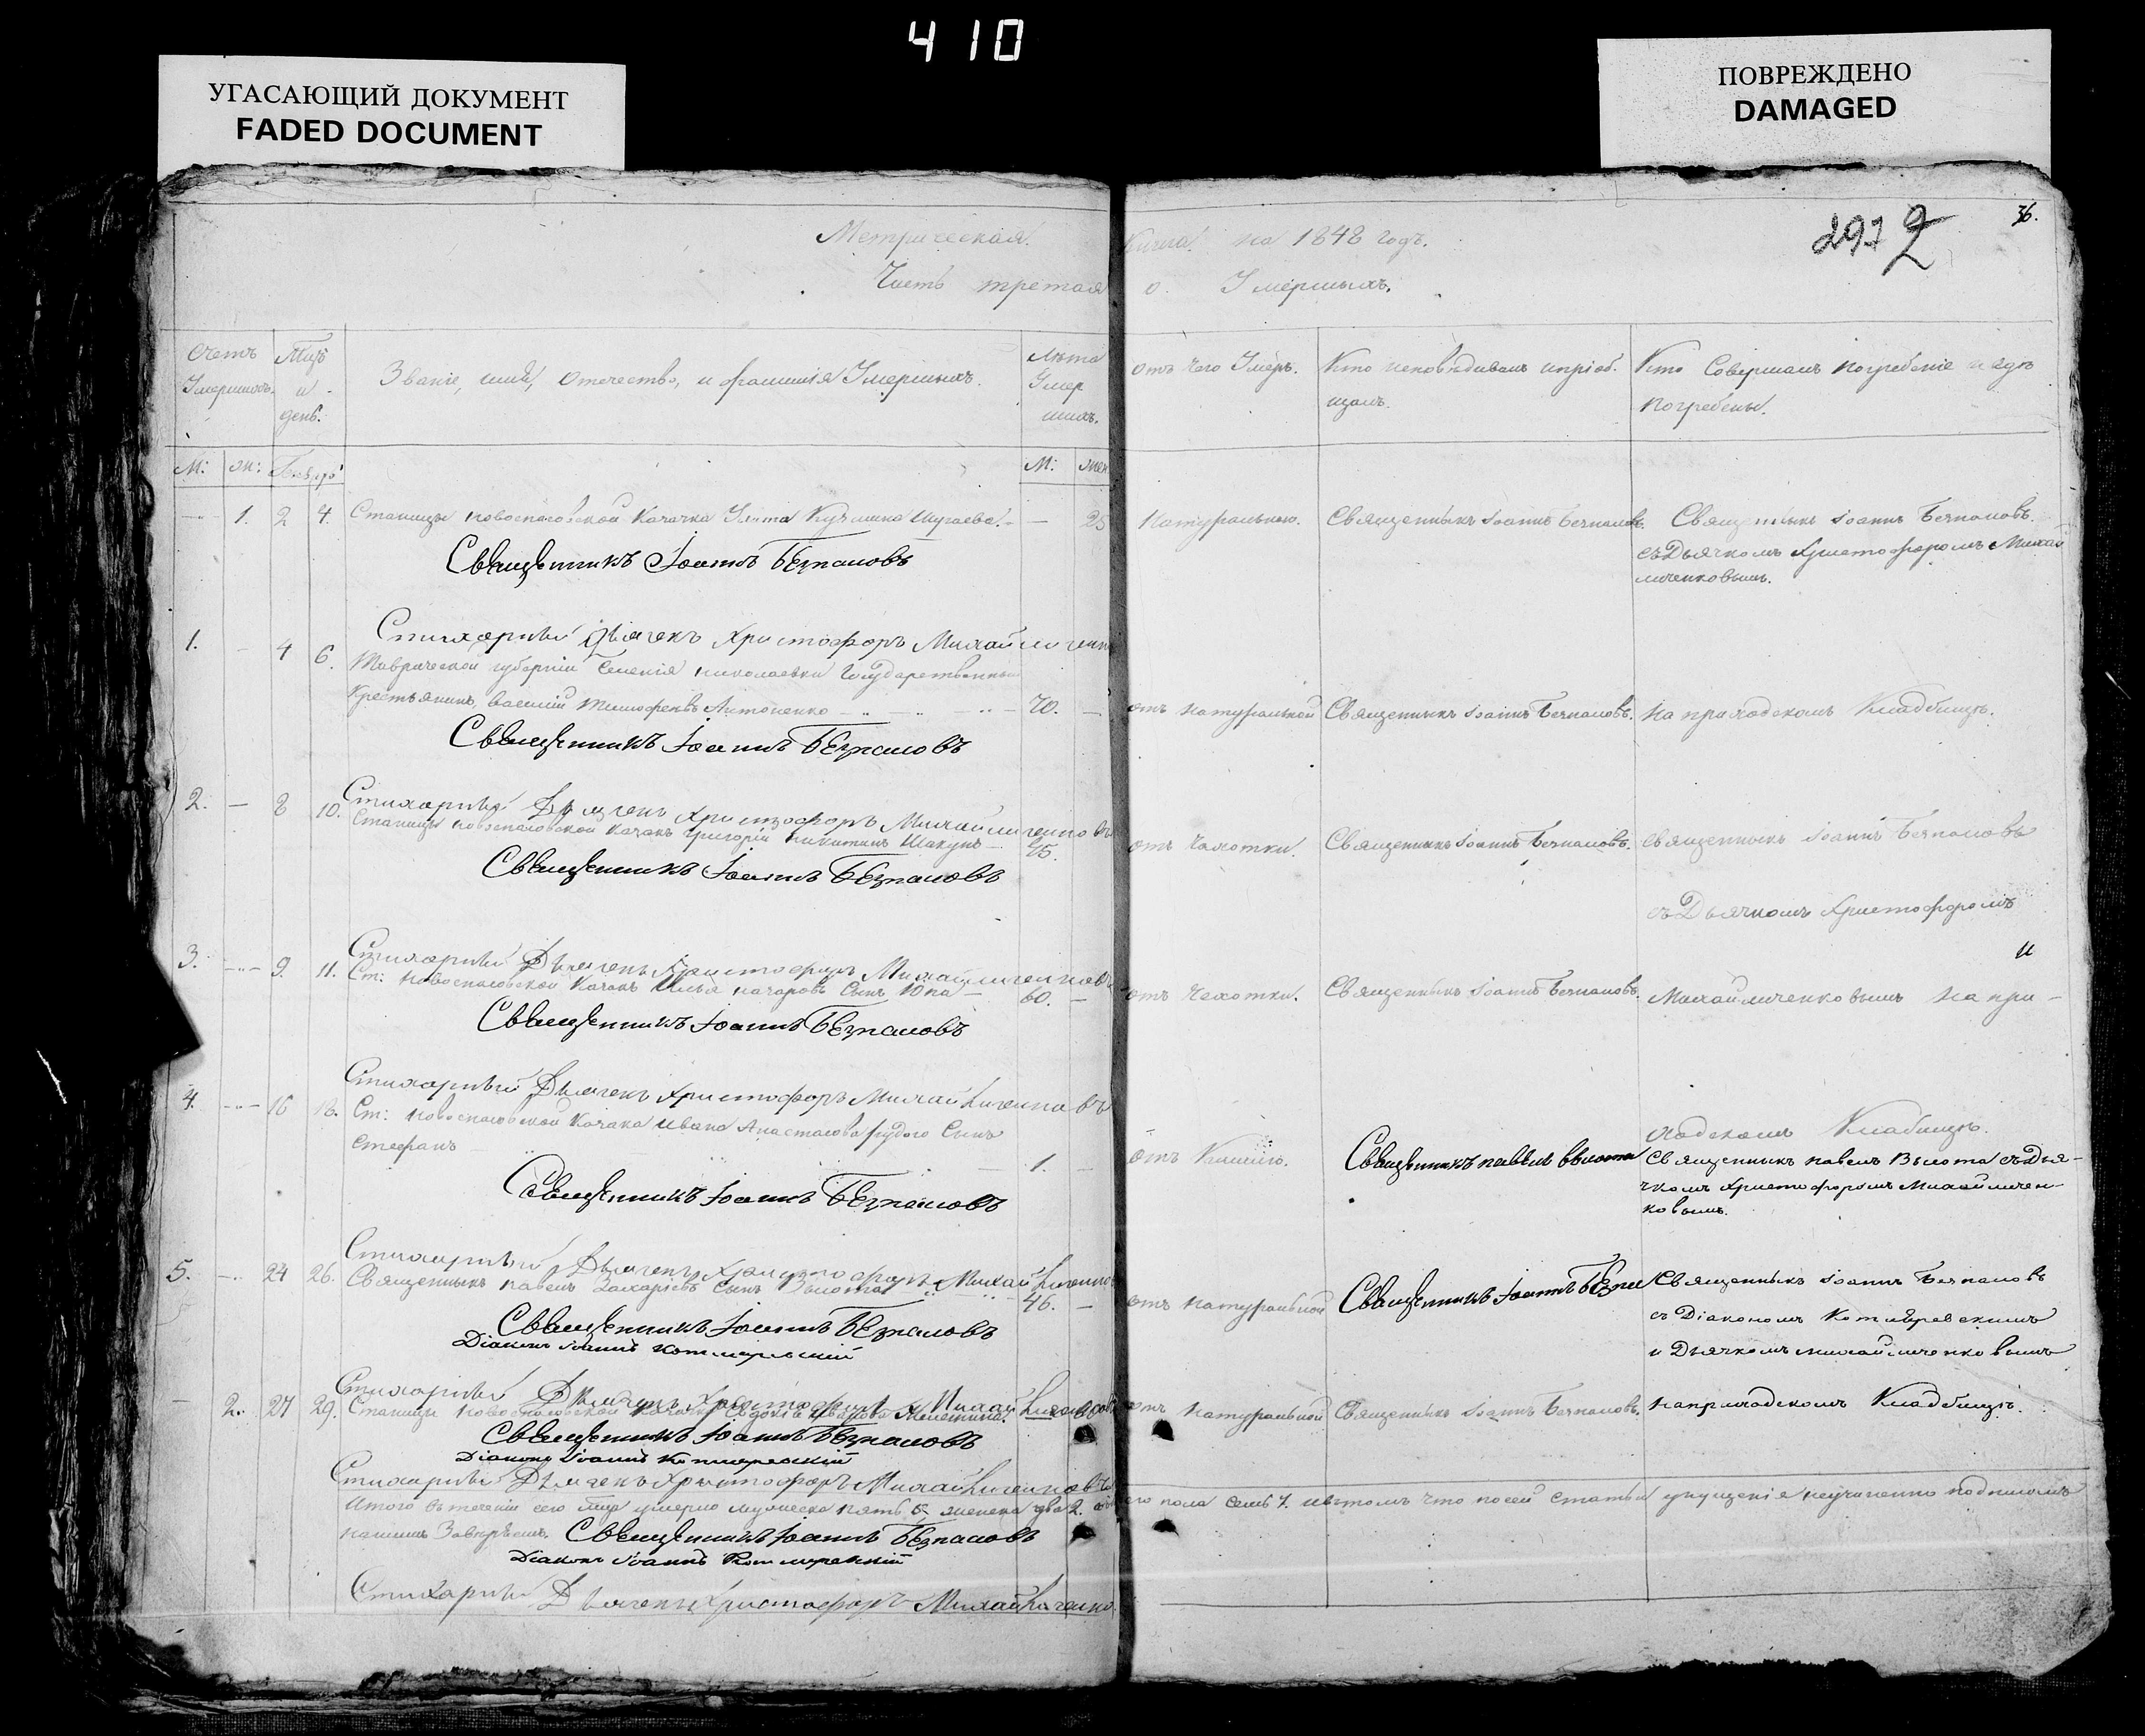 410
УГАСАЮЩИЙ ДОКУМЕНТ
FADED DOCUMENT
ПОВРЕЖДЕНО
DAMAGED
36.
2972
Метрическая Книга на 1848 годъ.
Часть третая о Умершихъ.
Счетъ Умершихъ.
Мцъ и день.
Званіе, имя, отечество, и фамилія Умершихъ.
Лѣта Умер шихъ.
отъ чего Умеръ.
Кто исповѣдывалъ и пріоб. щалъ.
Кто Совершалъ погребеніе и гдѣ погребены.
М: ж: М: жен
1. 2 4. Станицы новоспасовской Казачка 25 натуральною. Священникъ Іоаннъ Безпаловъ. Священникъ Іоаннъ Безпаловъ.
съ Дьячкомъ Христофоромъ Михай
личенковымъ.
Священникъ Іоаннъ Безпаловъ
Стихарный Дьячекъ Христофоръ Михайличенко
1. 4 6. Таврической губерніи Селенія николаевки Государственный
Крестьянинъ, василій Тимофеевъ Антоненко 70. отъ натуральной Священникъ Іоаннъ Безпаловъ. на приходскомъ Кладбищѣ.
Священникъ Іоаннъ Безпаловъ
Стихарный Дьячекъ Христофоръ Михайличенковъ
2. 8 10. Станицы новоспасовской Казакъ григорій никитинъ Шакунъ 45. отъ Чахотки. Священникъ Іоаннъ Безпаловъ. Священникъ Іоаннъ Безпаловъ
Священникъ Іоаннъ Безпаловъ
съ Дьячкомъ Христофоромъ
и
Стихарный Дьячекъ Христофоръ Михайличенковъ
3. 9. 11. Ст: новоспасовской Казакъ Илья Сынъ 60. отъ Чахотки. Священникъ Іоаннъ Безпаловъ. Михайличенковымъ на при-
Священникъ Іоаннъ Безпаловъ
Стихарный Дьячекъ Христофоръ Михайличенковъ
4. 16 18. Ст: новоспасовской Казака Ивана Сынъ
Стефанъ 1. отъ Священникъ павелъ Высота
ходскомъ Кладбищѣ.
Священникъ павелъ Высота съ Дья-
чкомъ Христофоромъ Михайличен-
ковымъ.
Священникъ Іоаннъ Безпаловъ
Стихарный Дьячекъ Христофоръ Михайличенко
5. 24 26. Священникъ павелъ Захаріевъ Сынъ Высота 46. отъ натуральной Священникъ Іоаннъ Священникъ Іоаннъ Безпаловъ
съ Діакономъ Котляревскимъ
и Дьячкомъ михайличенковымъ
Священникъ Іоаннъ Безпаловъ
Діаконъ Іоаннъ Котляревскій
Стихарный Дьячекъ Христофоръ Михайличенковъ
2. 27 29. Станицы новоспасовской натуральной Священникъ Іоаннъ Безпаловъ. на приходскомъ Кладбищѣ.
Священникъ Іоаннъ Безпаловъ
Діаконъ Іоаннъ Котляревскій
Стихарный Дьячекъ Христофоръ Михайличенковъ
Итого въ теченіи сего умерло мужеска пять 5. женска два 2. пола семь 7. и въ томъ что посей Статьи упущенія неучиненно подписомъ
нашимъ Завѣряемъ. Священникъ Іоаннъ Безпаловъ
Діаконъ Іоаннъ Котляревскій
Стихарный Дьячекъ Христофоръ Михайличенко